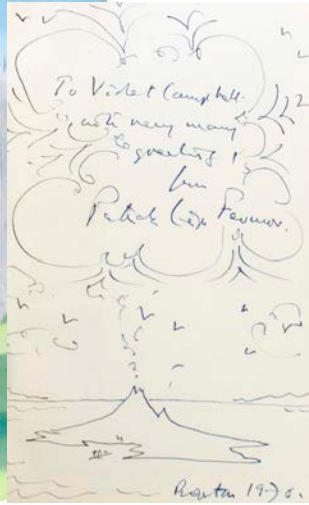 To Violet Campbell.
with very many
greetings !
from
Patrick Leigh Fermor.